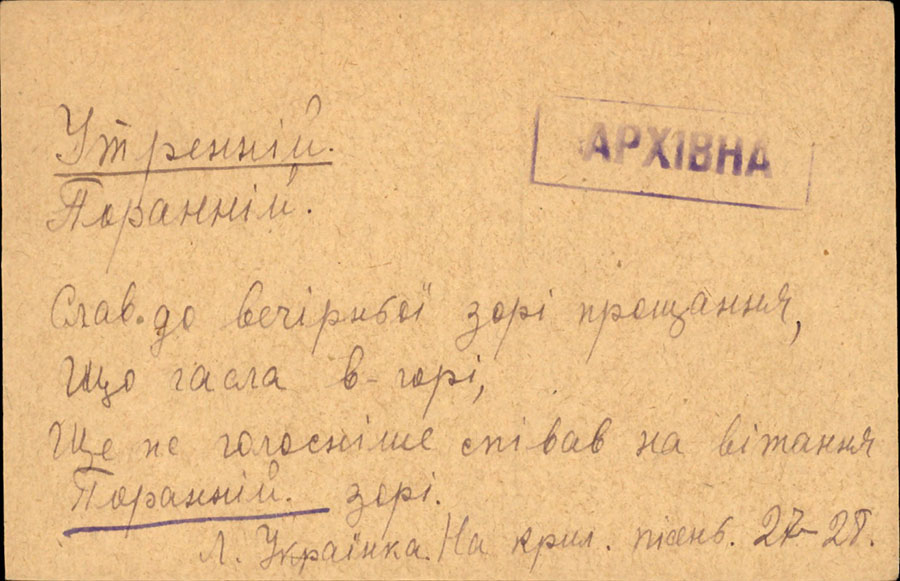 АРХІВНА
Утренній.
Поранній.
Слав до вечірньої зорі прощання,
Що гасла в-горі,
Ще не голосніше співав на вітання
Поранній. зорі.
Л. Українка. На крил. пісень. 27-28.